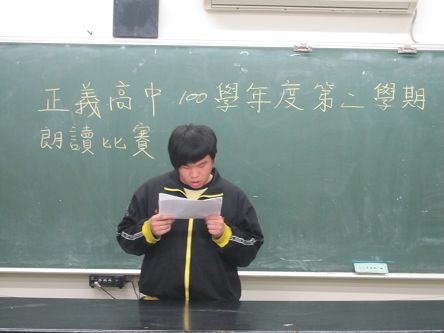 正義高中 100 學年度第二學期
朗讀比賽